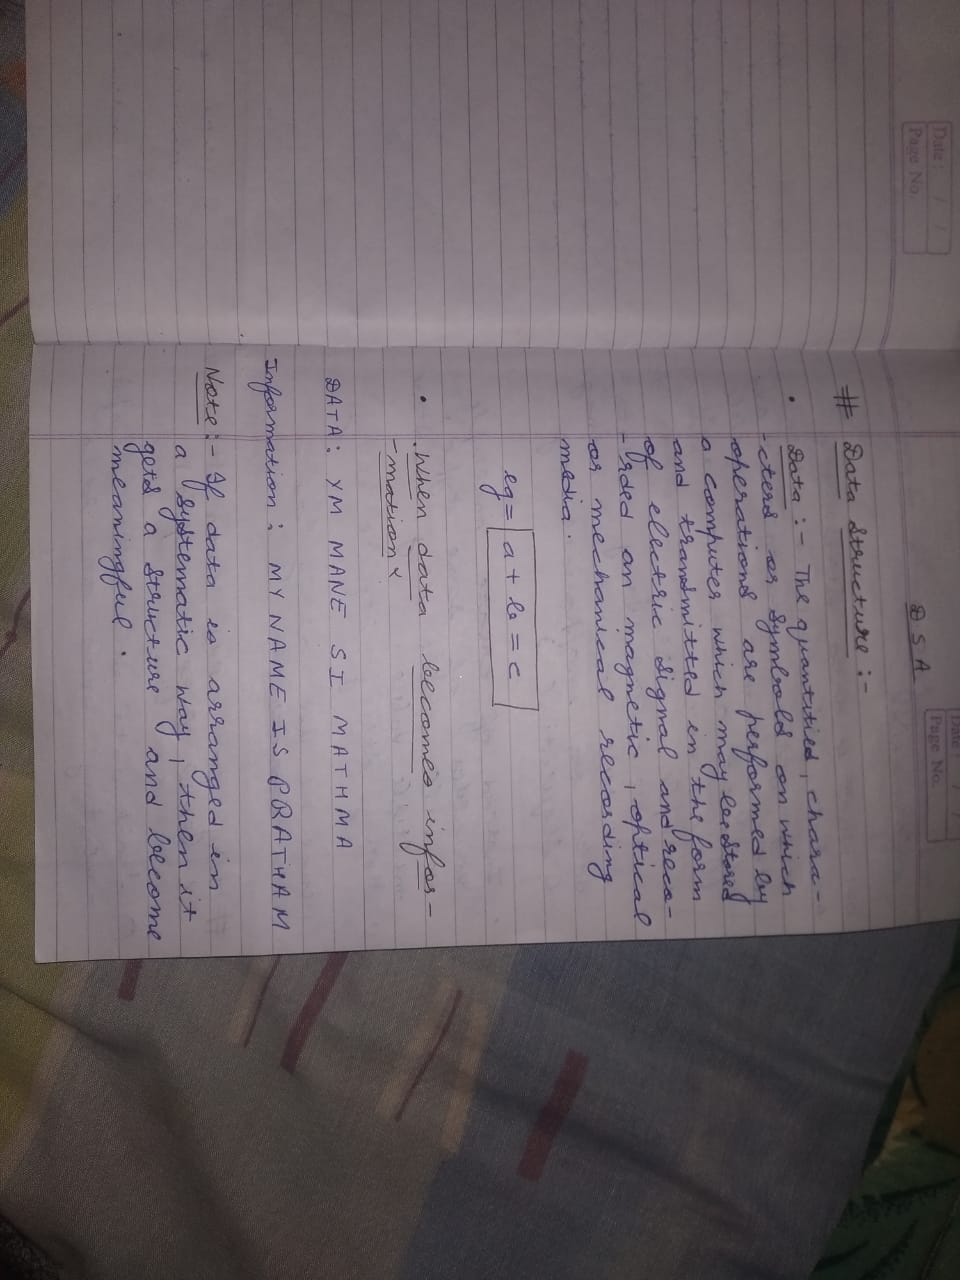 Date: / /
Page No.
DSA
Date:
Page No.
# Data Structure :-
• Data :- The quantities, chara-
-cters or symbols on which
operations are performed by
a computer which may be stored
and transmitted in the form
of electric signal and reco-
-rded on magnetic, optical
or mechanical recording
media.
eg = a + b = c
• When data becomes infor-
-mation
DATA: YM MANE SI MATHMA
Information: MY NAME IS PRATHAM
Note:- If data is arranged in
a systematic way, then it
gets a structure and become
meaningful.